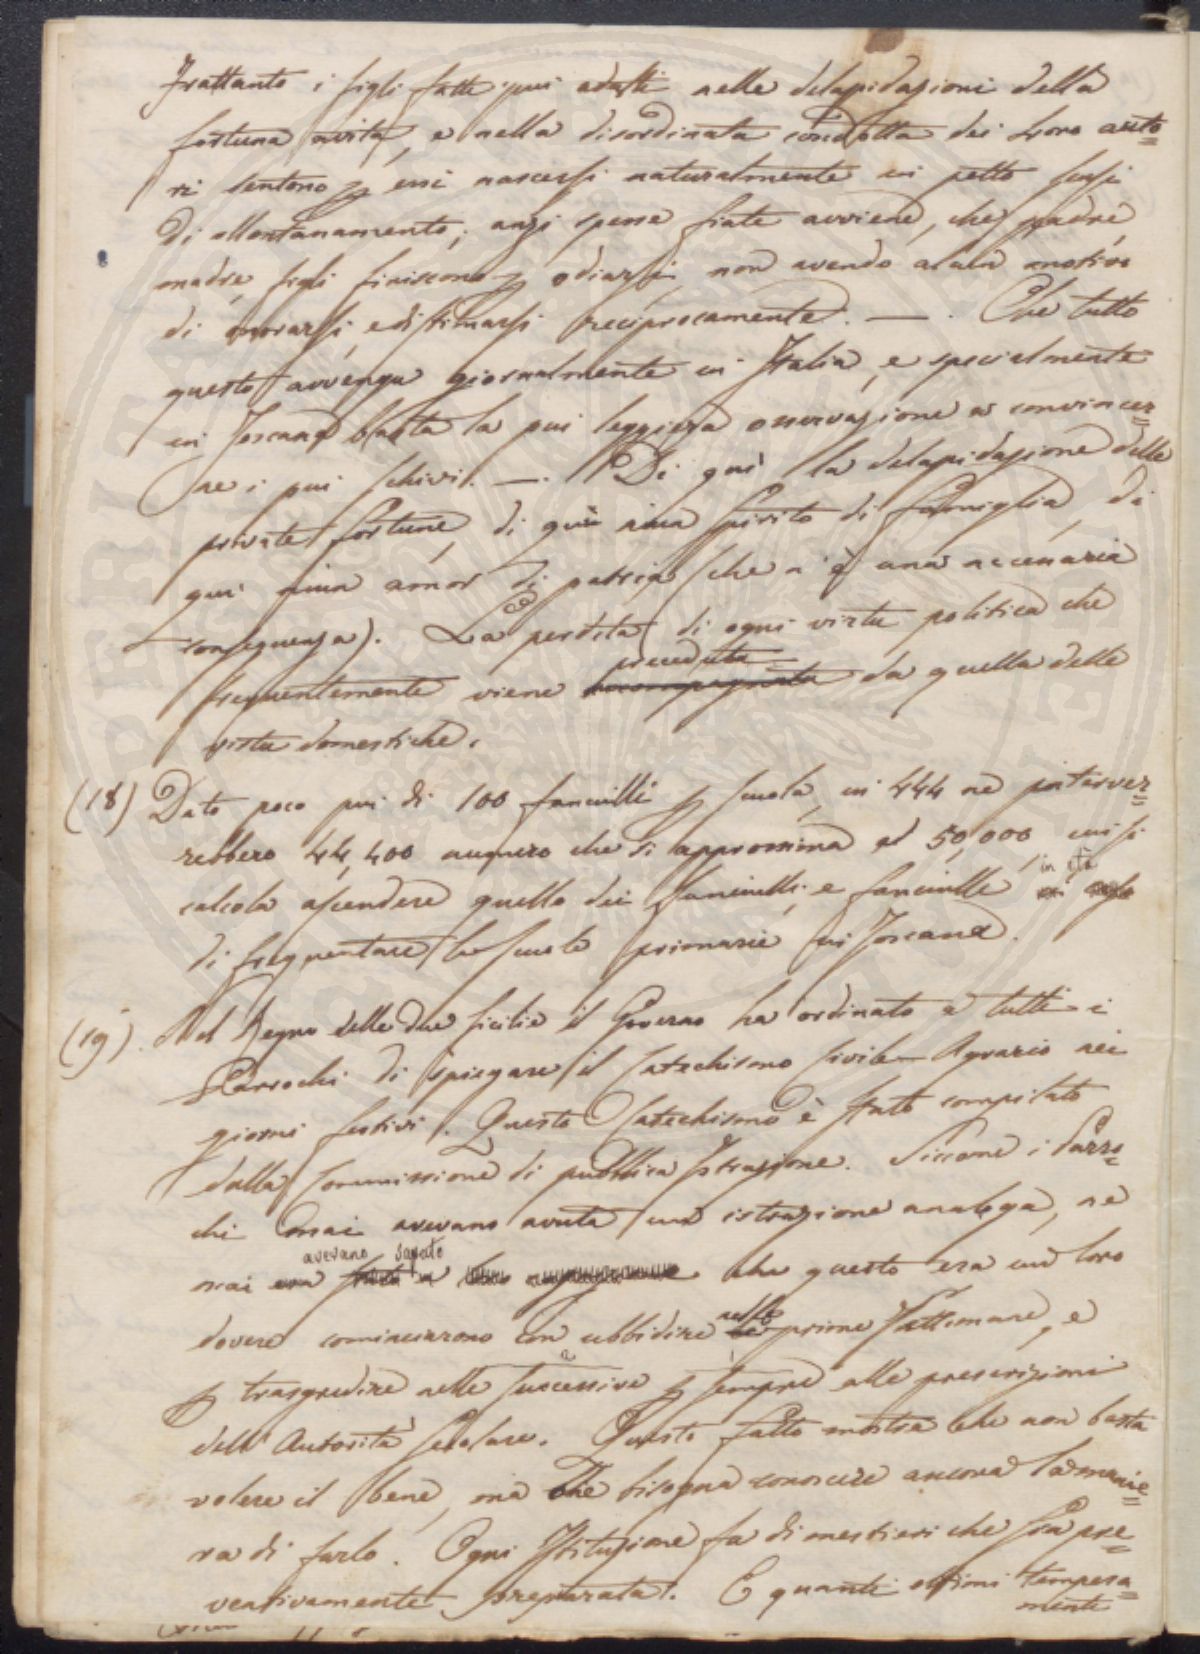 Frattanto i figli fatti piui adulti nelle delapidazioni della
fortuna avita, e nella disordinata condotta dei loro auto=
ri sentono p essi nascersi naturalmente in petto sensi
di allontanamento; anzi spesse fiate avviene, che padre,
madre, figli finiscono p odiarsi, non avendo alcun motivo
di amarsi, e di stimarsi reciprocamente. —. Che tutto
questo avvenga giornalmente in Italia, e specialmente
in Toscana basta la piui leggiera osservazione a convincer=
ne i piui schivi. —. Di qui la delapidazione delle
private fortune, di qui niun spirito di famiglia, di
qui niun amor di patria (che n'è una necessaria
conseguenza). La perdita di ogni virtu politica che
frequentemente viene preceduta da quella delle
virtu domestiche.
(18) Dato poco piui di 100 fanciulli p scuola, in 444 ne interver=
rebbero 44,400 numero che si approssima al 50,000, cui si
calcola ascendere quello dei fanciulli, e fanciulle in età
di frequentare le scuole primarie in Toscana.
(19). Nel Regno delle due Sicilie il Governo ha ordinato a tutti i
Parrochi di spiegare il Catechismo Civile-Agrario nei
giorni festivi. Questo Catechismo è stato compilato
dalla Commissione di pubblica Istruzione. Siccome i Parro=
chi mai avevano avuta una istruzione analoga, ne
mai avevano saputo che questo era un loro
dovere cominciarono con ubbidire nelle prime settimane, e
p trasgredire nelle successive p sempre alle prescrizioni
dell'Autorità secolare. Questo fatto mostra che non basta
volere il bene, ma che bisogna conoscere ancora la manie=
ra di farlo. Ogni Istituzione fa di mestieri che sia pre=
ventivamente preparata. E quanti ottimi tempera=
menti